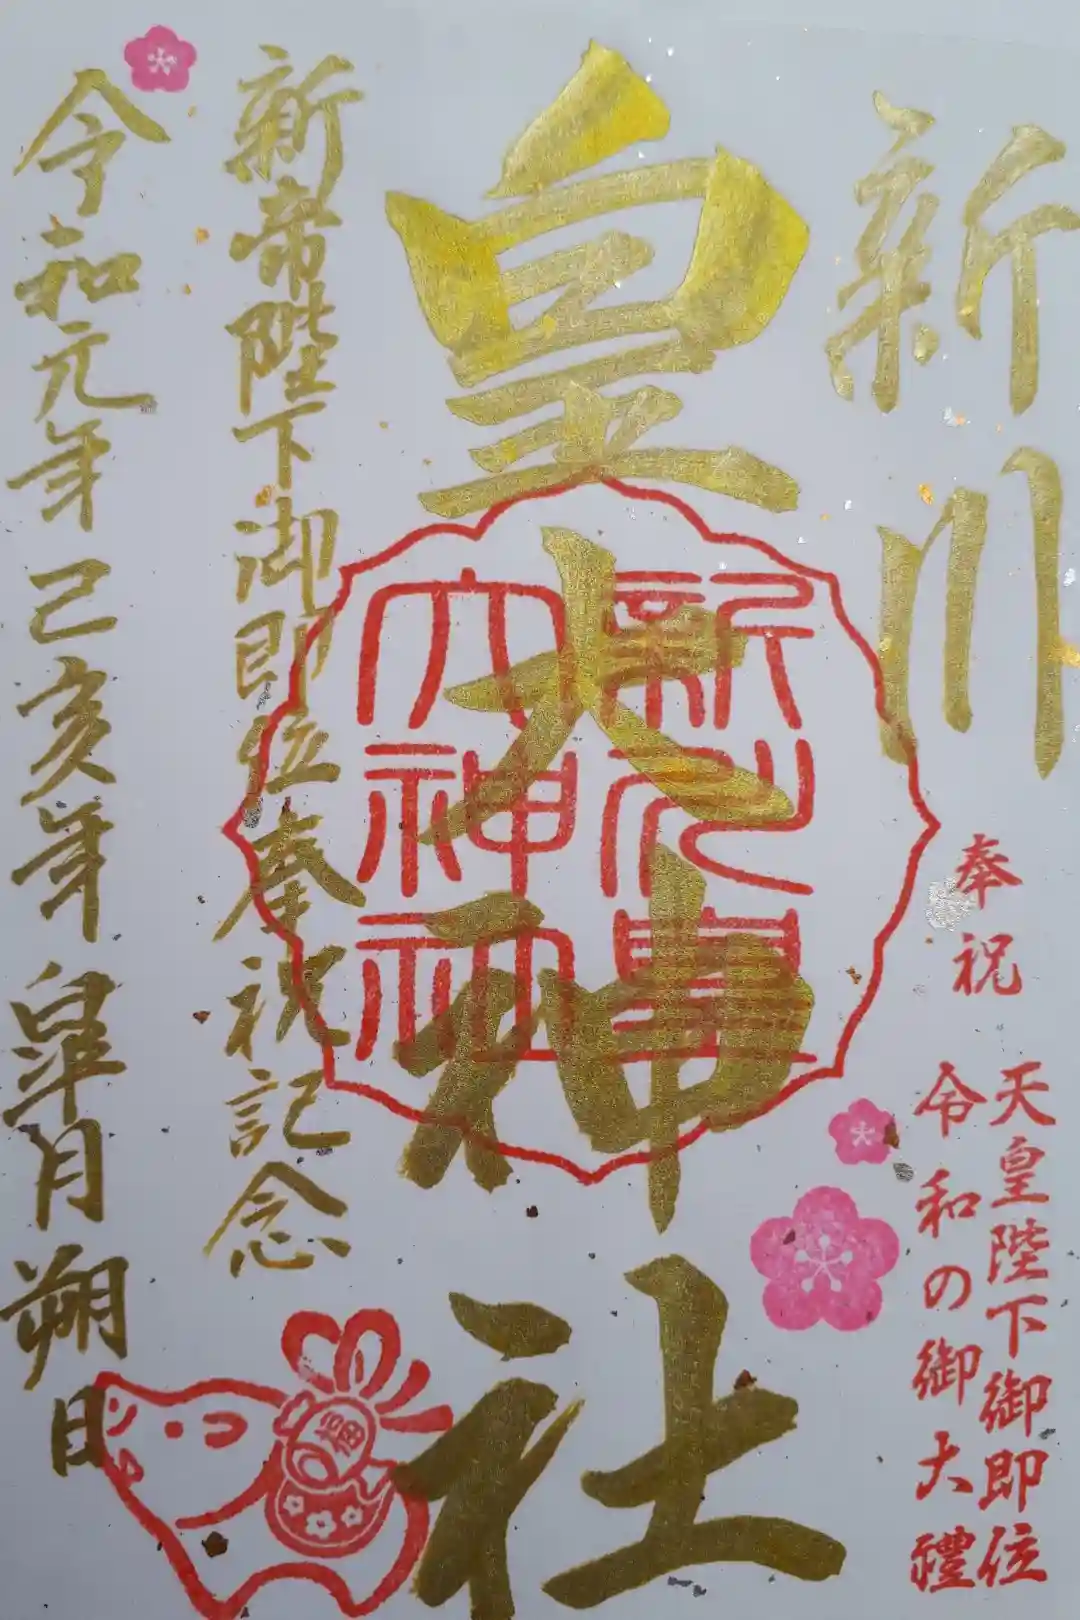 新川
奉祝
天皇陛下御即位
令和の御大禮
皇大神社
新川皇
大神社
新帝陛下御即位奉祝記念
令和元年己亥年皐月朔日
福